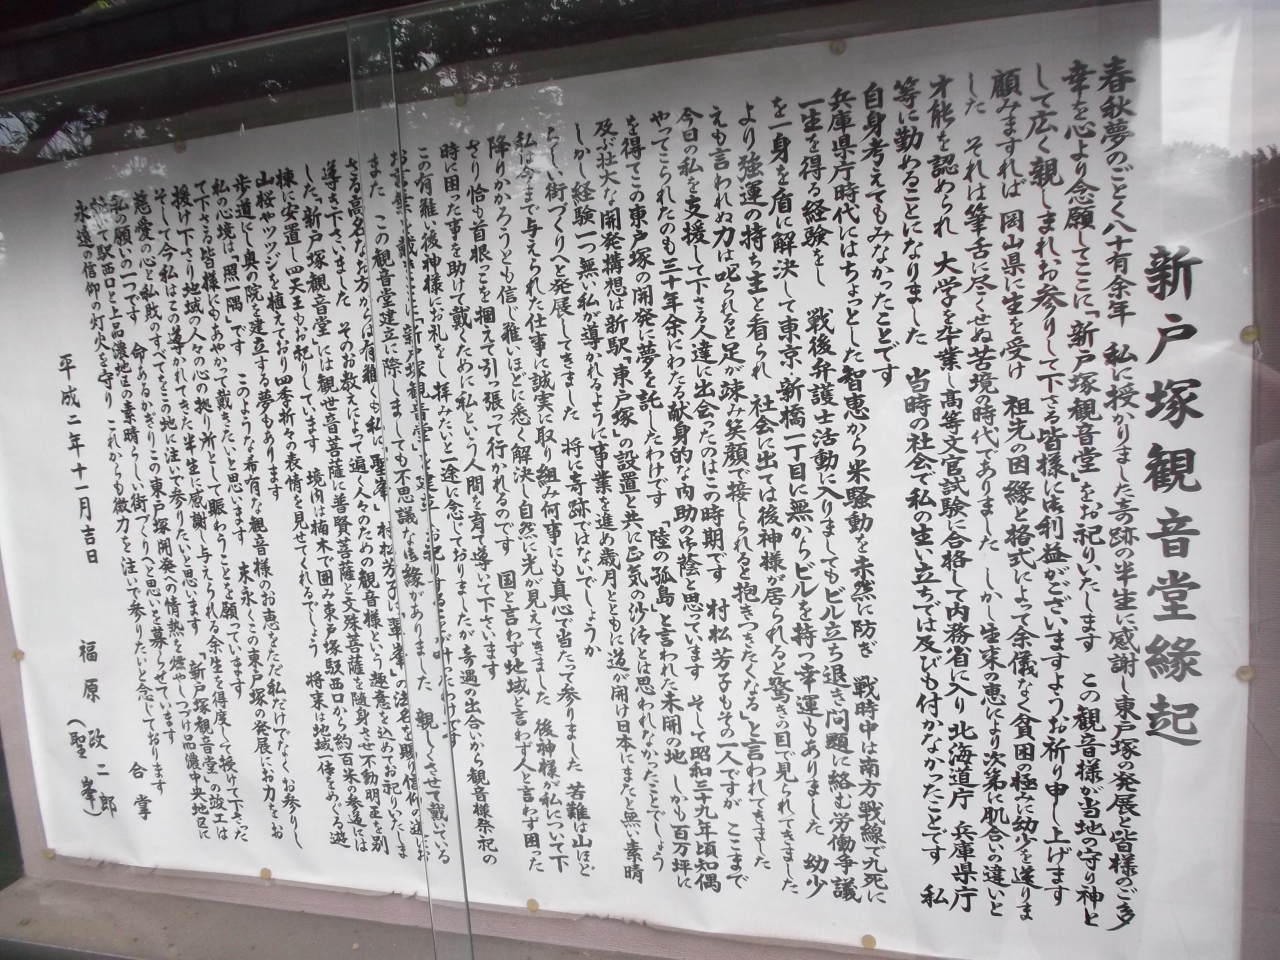 新戸塚観音堂縁起
春秋夢のごとく八十有余年 私に授かりました奇跡の半生に感謝し東戸塚の発展と皆様のご多
幸を心より念願してここに「新戸塚観音堂」をお祀りいたします この観音様が当地の守り神と
して広く親しまれお参りして下さる皆様に御利益がございますようお祈り申し上げます
顧みますれば 岡山県に生を受け 祖先の因縁と格式によって余儀なく貧困の極みに幼少を送りま
した それは筆舌に尽くせぬ苦境の時代でありました しかし生来の恵により次第に肌合いの違いと
才能を認められ 大学を卒業し高等文官試験に合格して内務省に入り 北海道庁 兵庫県庁
等に勤めることになりました 当時の社会で私の生い立ちでは及びも付かなかったことです 私
自身考えてもみなかったことです
兵庫県庁時代にはちょっとした智恵から米騒動を未然に防ぎ 戦時中は南方戦線で九死に
一生を得る経験をし 戦後弁護士活動に入りましてもビル立ち退き問題に絡む労働争議
を一身を盾に解決して東京・新橋一丁目に無からビルを持つ幸運もありました 幼少
より強運の持ち主と看られ 社会に出ては後神様が居られると驚きの目で見られてきました
えも言われぬ力は「叱られると足が竦み笑顔で接しられると抱きつきたくなる」と言われてきました
今日の私を支援して下さる人達に出会ったのはこの時期です 村松芳子もその一人ですが ここまで
やってこられたのも三十年余にわたる献身的な内助のお蔭と思っています そして昭和三十九年頃知偶
を得てこの東戸塚の開発に夢を託したわけです 「陸の孤島」と言われた未開の地 しかも百万坪に
及ぶ壮大な開発構想は新駅「東戸塚」の設置と共に正気の沙汰とは思われなかったことでしょう
しかし経験一つ無い私が導かれるように事業を進め歳月とともに道が開け日本にまたと無い素晴
らしい街づくりへと発展してきました 将に奇跡ではないでしょうか
私は今まで与えられた仕事に誠実に取り組み何事にも真心で当たって参りました 苦難は山ほど
降りかかろうとも信じ難いほどに悉く解決し自然に光が見えてきました 後神様が私について下
さり恰も首根っこを掴えて引っ張って行かれるのです 国と言わず地域と言わず人と言わず困った
時に困った事を助けて戴くために私という人間を育て導いて下さいます
この有難い後神様にお礼をし拝みたいと一途に念じておりましたが奇遇の出合いから観音様祭祀の
お言葉を戴き 新戸塚観音堂 を建立 お祀りすることが叶ったわけです
また この観音堂建立に際しましても不思議な御縁がありました 親しくさせて戴いている
さる高名なお方からは有難くも私に「聖峯」村松芳子に「華峯」の法名を賜り信仰の道にお
導き下さいました そのお教えによって遍く人々のための観音様という趣意を込めてお祀りいたしま
した 「新戸塚観音堂」には観世音菩薩に普賢菩薩と文殊菩薩を随身させ不動明王を別
棟に安置し四天王もお祀りしています 境内は楠木で囲み東戸塚駅西口から約百米の参道には
山桜やツツジを植えており四季折々の表情を見せてくれるでしょう 将来は地域一体をめぐる遊
歩道にし奥の院を建立する夢もあります
私の心境は「照一隅」です このような希有な観音様のお恵をただ私だけでなく お参りし
て下さる皆様にもあやかって戴きたいと思います 末永くこの東戸塚の発展にお力をお
授け下さり地域の人々の心の拠り所として賑わうことを願っています
そして今 私はこの導かれてきた半生に感謝し与えられる余生を得度して授けて下さった
慈愛の心と私財のすべてをこの地に注いで参りたいと思います 「新戸塚観音堂」の竣工は
私の願いの一つです 命あるかぎりこの東戸塚開発への情熱を燃やしつづけ品濃中央地区に
続いて駅西口と上品濃地区の素晴らしい街づくりへと思いを募らせています
永遠の信仰の灯火を守り これからも微力を注いで参りたいと念じております
合掌
平成二年十一月吉日 福原政二郎
(聖峯)